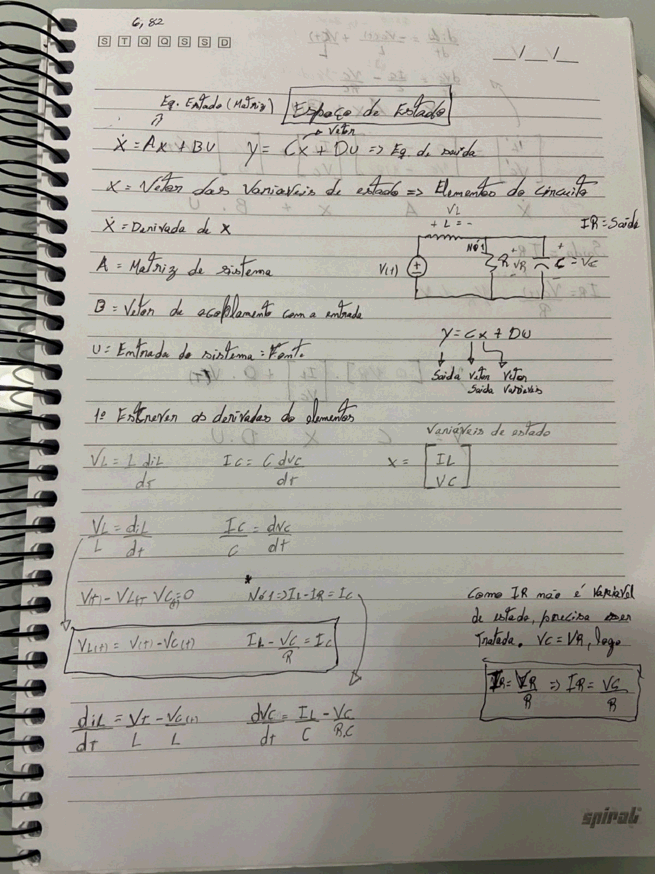 6,82
S T Q Q S S D
__/__/__
Eq. Estado (Matriz)
Espaço de Estado
Vetor
Ẋ = Ax + BU   y = Cx + DU => Eq. de saída
X = Vetor das Variáveis de estado => Elementos do circuito
Ẋ = Derivada de X
VL
+ L = -
IR = Saída
Nó1
V(t)
+
R VR
-
+
C = VC
-
A = Matriz de sistema
B = Vetor de acoplamento com a entrada
U = Entrada do sistema: Font.
y = Cx + DU
Saída Vetor Vetor
Saída Variáveis
1º Escrever as derivadas do elementos
Variáveis de estado
VL = L diL/dt   IC = C dvc/dt   X = [IL VC]
VL/L = diL/dt   IC/C = dvc/dt
V(t) - VL(t) - VC(t) = 0   * Nó1 => IL - IR = IC
VL(t) = V(t) - VC(t)   IL - VC/R = IC
Como IR não é variável
de estado, precisa ser
Tratada. VC = VR, logo
IR = VR/R => IR = VC/R
diL/dt = Vt/L - VC(t)/L   dVC/dt = IL/C - VC/R.C
spiral